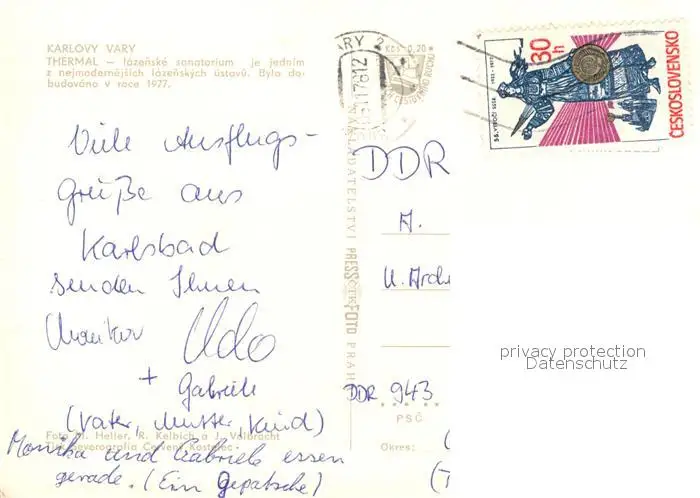 KARLOVY VARY
THERMAL — lázeňské sanatorium je jedním
z nejmodernějších lázeňských ústavů. Bylo do-
budováno v roce 1977.
Viele Ausflugs-
grüße aus
Karlsbad
senden Ihnen
Udo
+ Gabriele
(Vater, Mutter, Kind)
Foto M. Heller, R. Kelbich a J. Vollbracht
Tisk Severografia Červený Kostelec
Monika und Gabriele essen
gerade. (Ein
ARY 2
Kčs 0,20
NAKLADATELSTVÍ PRESSFOTO PRAHA
ČTK
30h
55. VÝROČÍ SSSR 1922-1977
ČESKOSLOVENSKO
DDR
A.
U.
DDR 943
PSČ
Okres:
privacy protection
Datenschutz